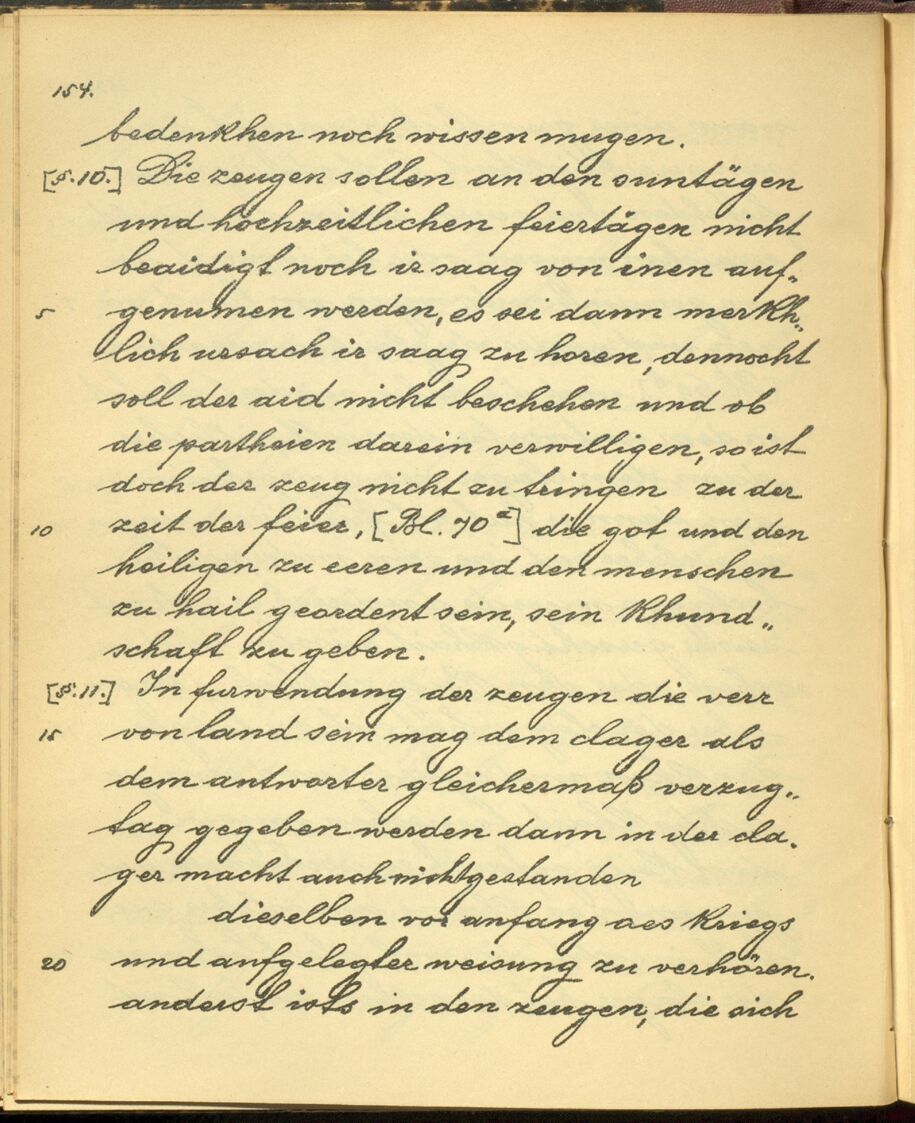 154.
bedenkhen noch wissen mugen.
[§.10.] Die zeugen sollen an den suntägen
und hochzeitlichen feiertägen nicht
beaidigt noch ir saag von inen auf„
5 genumen werden, es sei dann merkh„
lich ursach ir saag zu horen, dennocht
soll der aid nicht beschehen und ob
die partheien darein verwilligen, so ist
doch der zeug nicht zu tringen zu der
10 zeit der feier, [Bl. 70ª] die got und den
heiligen zu eeren und den menschen
zu hail geordent sein, sein khund„
schaft zu geben.
[§.11.] In furwendung der zeugen die verr
15 von land sein mag dem clager als
dem antworter gleichermaß verzug„
tag gegeben werden dann in der cla„
ger macht auch nicht gestanden
dieselben vor anfang des kriegs
20 und aufgelegter weisung zu verhören.
anderst ists in den zeugen, die sich